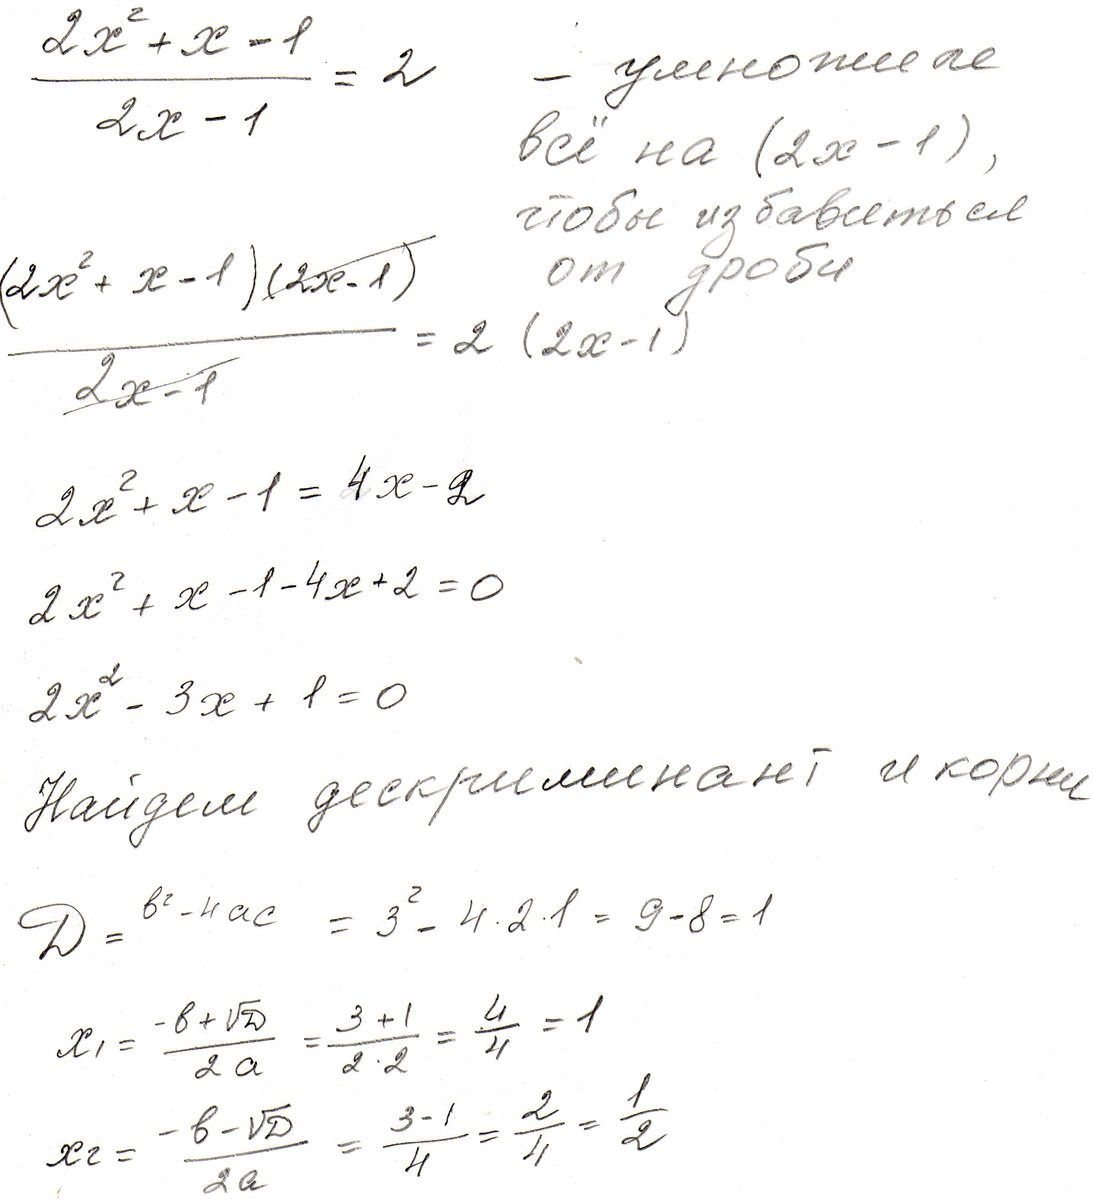 (2x² + x - 1) / (2x - 1) = 2 - умножим
всё на (2x - 1),
чтобы избавиться
от дроби
((2x² + x - 1)(2x - 1)) / (2x - 1) = 2 (2x - 1)
2x² + x - 1 = 4x - 2
2x² + x - 1 - 4x + 2 = 0
2x² - 3x + 1 = 0
Найдем дескриминант и корни
D = b² - 4ac = 3² - 4·2·1 = 9 - 8 = 1
x₁ = (-b + √D) / (2a) = (3 + 1) / (2·2) = 4/4 = 1
x₂ = (-b - √D) / (2a) = (3 - 1) / 4 = 2/4 = 1/2